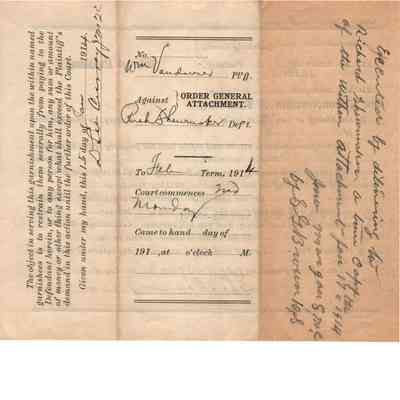 The object in serving this garnishment upon the within named
garnishees is to restrain them severally from paying to the
Defendant herein, or to any person for him, any sum or amount
of money or other thing except what shall exceed the Plaintiff's
demand in this action until the further order of this Court.
Given under my hand, this 15 day of Jan 1914.
No.
Wm Vandiver Pl'ff.
Against ORDER GENERAL
ATTACHMENT.
Rich Shewmaker Def't.
To Feb Term, 1914
Court commences 2nd
Monday
Came to hand day of
191 , at o'clock M.
Executed by delivering to
Richard Shewmaker a true Copy
of the within attachment Jan 19 1914